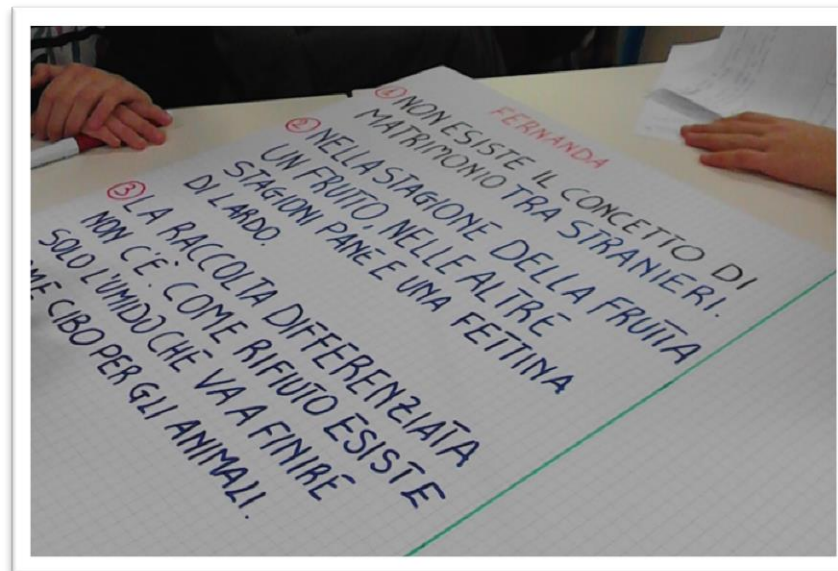 FERNANDA
① NON ESISTE IL CONCETTO DI
MATRIMONIO TRA STRANIERI.
② NELLA STAGIONE DELLA FRUTTA
UN FRUTTO, NELLE ALTRE
STAGIONI PANE E UNA FETTINA
DI LARDO.
③ LA RACCOLTA DIFFERENZIATA
NON C'È. COME RIFIUTO ESISTE
SOLO L'UMIDO CHE VA A FINIRE
COME CIBO PER GLI ANIMALI.